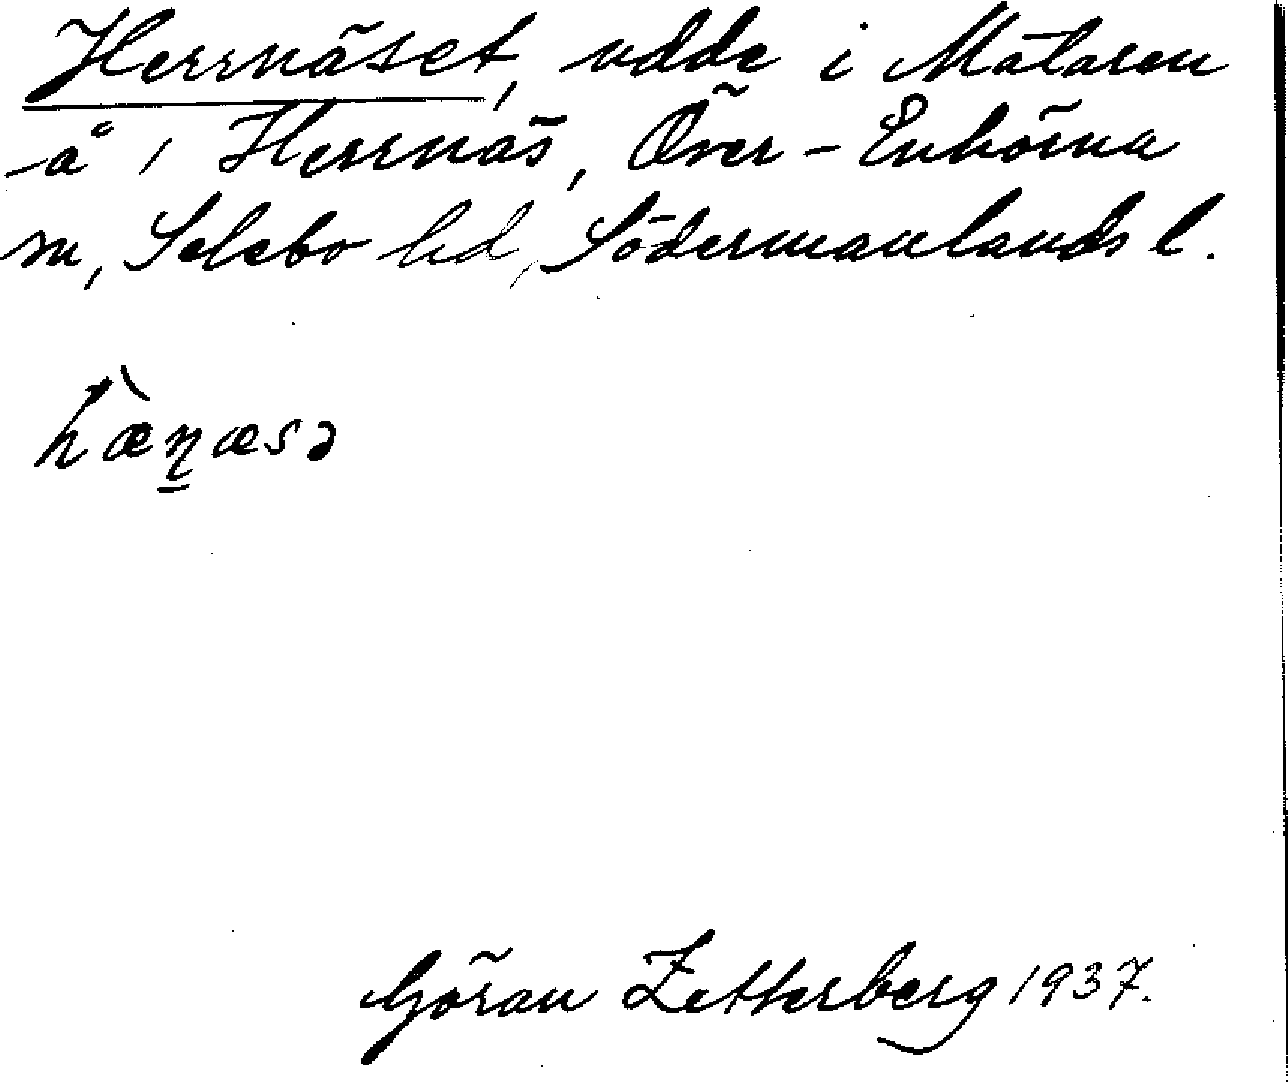 Herrnäset, udde i Mälaren
å 1 Herrnäs, Över-Enhörna
sn, Selebo hd, Södermanlands l.
hæ̀n̠æsə
Göran Zetterberg 1937.